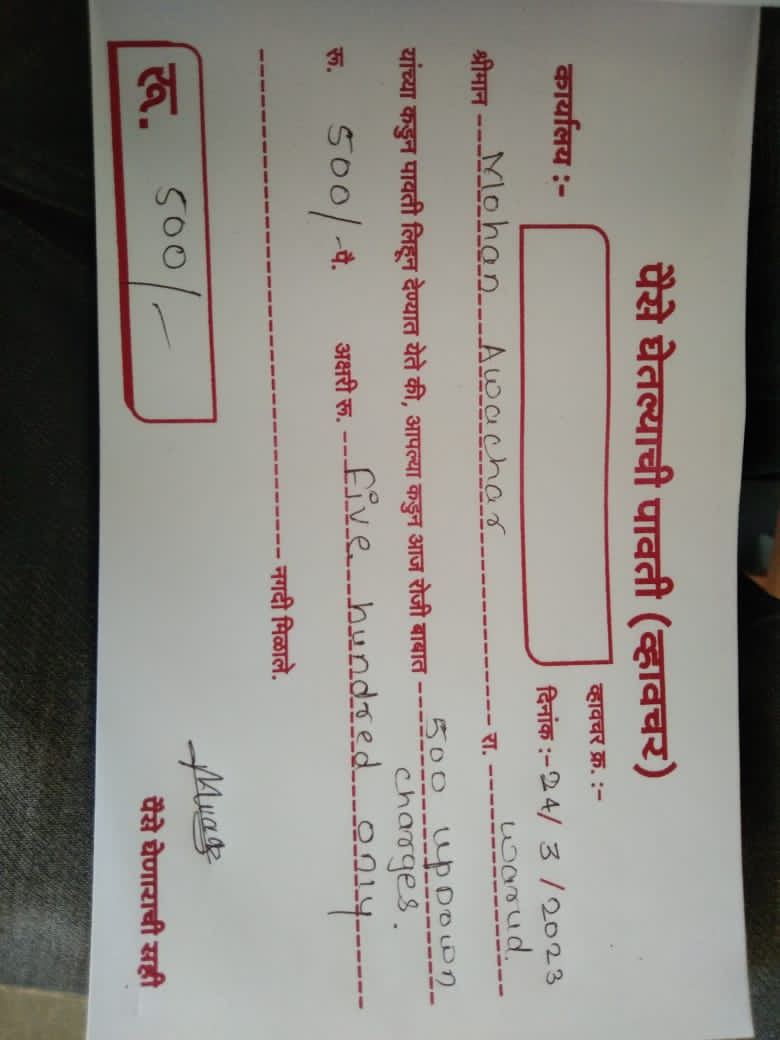 पैसे घेतल्याची पावती (व्हावचर)
व्हावचर क्र. :-
कार्यालय :- दिनांक :- 24/3/2023
श्रीमान Mohan Awachar रा. warud.
यांच्या कडुन पावती लिहुन देण्यात येते की, आपल्या कडुन आज रोजी बाबात 500 up Down
charges.
रू. 500/- पै. अक्षरी रू. Five hundred only
नगदी मिळाले.
रू. 500/-
पैसे घेणाराची सही